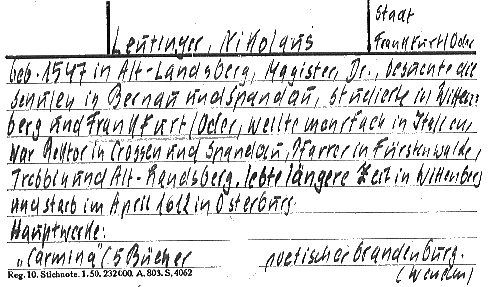 Stadt
Leutinger, Nikolaus Frankfurt/Oder
geb. 1547 in Alt-Landsberg, Magister, Dr., besuchte die
Schulen in Bernau und Spandau, studierte in Witten-
berg und Frankfurt/Oder, weilte mehrfach in Italien,
war Rektor in Crossen und Spandau, Pfarrer in Fürstenwalde,
Trebbin und Alt-Landsberg, lebte längere Zeit in Wittenberg
und starb im April 1612 in Osterburg.
Hauptwerke:
"Carmina" (5 Bücher poetischer Brandenburg.
Reg. 10. Stichnote. 1. 50. 232000. A. 803. S. 4062